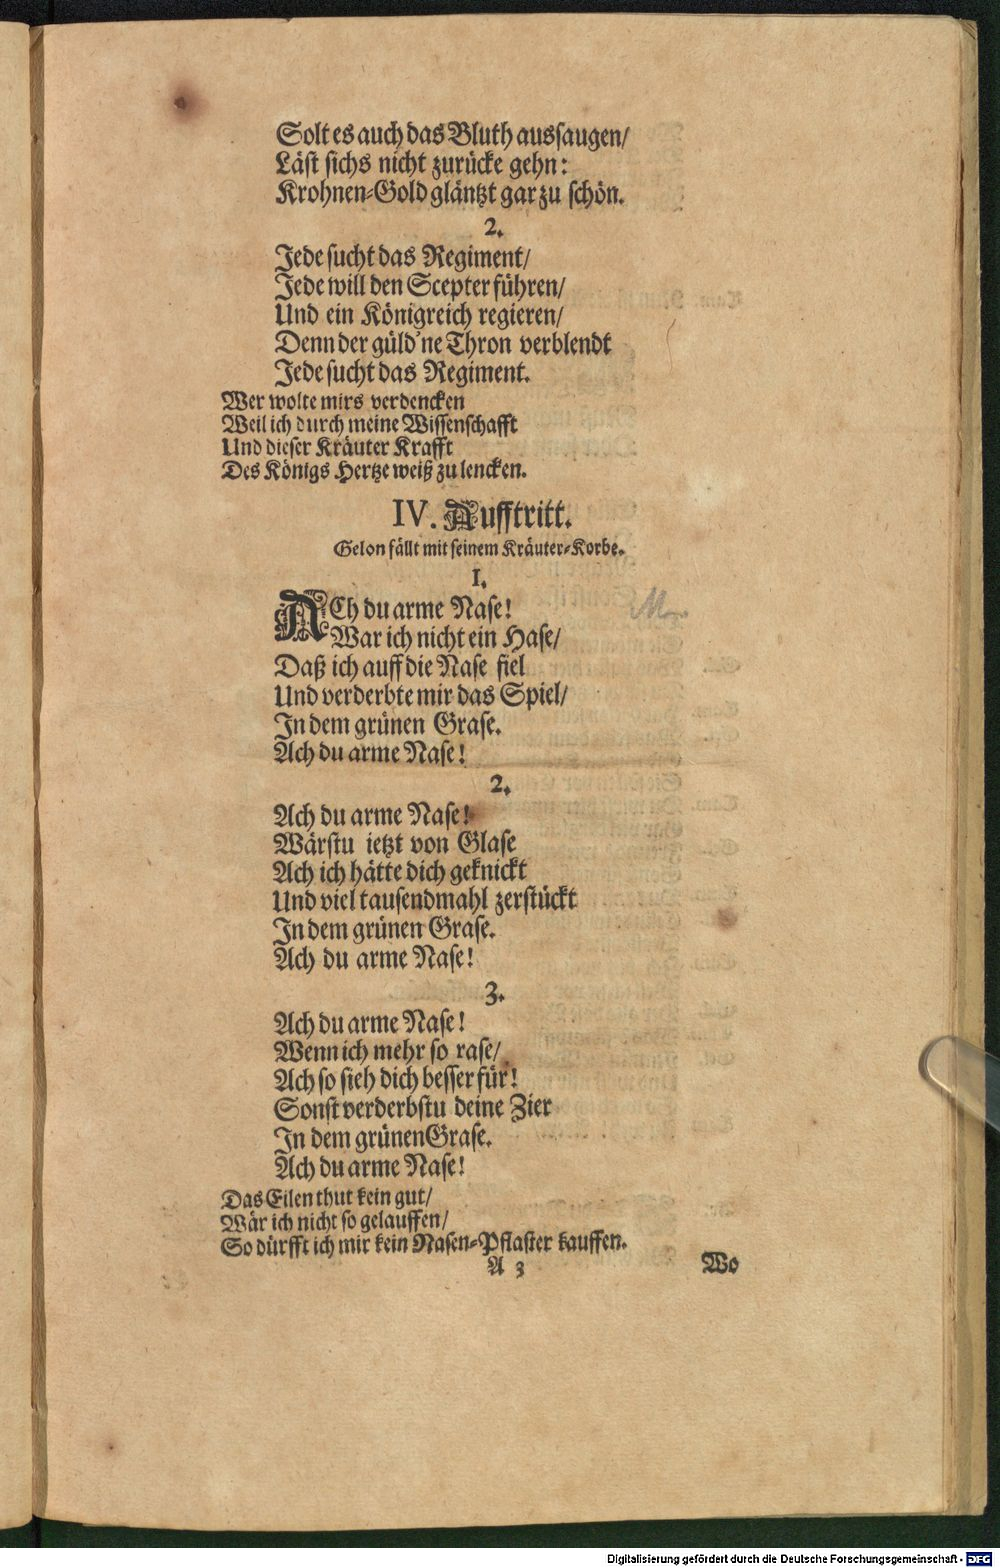 Solt es auch das Bluth aussaugen/
Läst sichs nicht zurücke gehn:
Krohnen-Gold gläntzt gar zu schön.
2.
Jede sucht das Regiment/
Jede will den Scepter führen/
Und ein Königreich regieren/
Denn der güld'ne Thron verblendt
Jede sucht das Regiment.
Wer wolte mirs verdencken
Weil ich durch meine Wissenschafft
Und dieser Kräuter Krafft
Des Königs Hertze weiß zu lencken.
IV. Aufftritt.
Gelon fällt mit seinem Kräuter-Korbe.
1.
ACh du arme Nase!
War ich nicht ein Hase/
Daß ich auff die Nase fiel
Und verderbte mir das Spiel/
In dem grünen Grase.
Ach du arme Nase!
2.
Ach du arme Nase!
Wärstu ietzt von Glase
Ach ich hätte dich geknickt
Und viel tausendmahl zerstückt
In dem grünen Grase.
Ach du arme Nase!
3.
Ach du arme Nase!
Wenn ich mehr so rase/
Ach so sieh dich besser für!
Sonst verderbstu deine Zier
In dem grünen Grase.
Ach du arme Nase!
Das Eilen thut kein gut/
Wär ich nicht so gelauffen/
So dürfft ich mir kein Nasen-Pflaster kauffen.
A 3 Wo
Digitalisierung gefördert durch die Deutsche Forschungsgemeinschaft - DFG